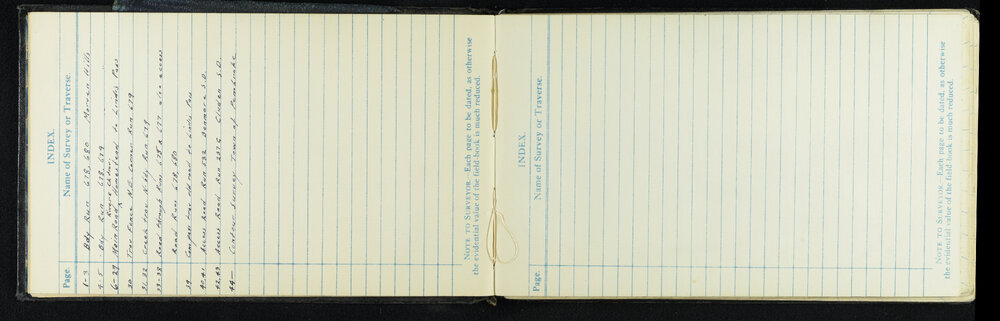 INDEX.
Page. Name of Survey or Traverse.
1-3 Bdy Run 678, 680 Morven Hills
4-5 Bdy Run 678, 679
Rogers Chter
6-29 Main Road Tarras road to Lindis Pass
30 Trav Fence N.E. Corner Run 679
31-32 Creek trav N. Bdy Run 679
33-38 Road through Runs 678 & 677 also access
Road Runs 678, 680
39 Compass trav old road to Lindis Pass
40-41 Access Road Run 532 Benmore S.D.
42-43 Access Road Run 237G Cluden S.D.
44- Contour Survey Town of Pembroke
NOTE TO SURVEYOR.—Each page to be dated, as otherwise
the evidential value of the field-book is much reduced.
INDEX.
Page. Name of Survey or Traverse.
NOTE TO SURVEYOR.—Each page to be dated, as otherwise
the evidential value of the field-book is much reduced.